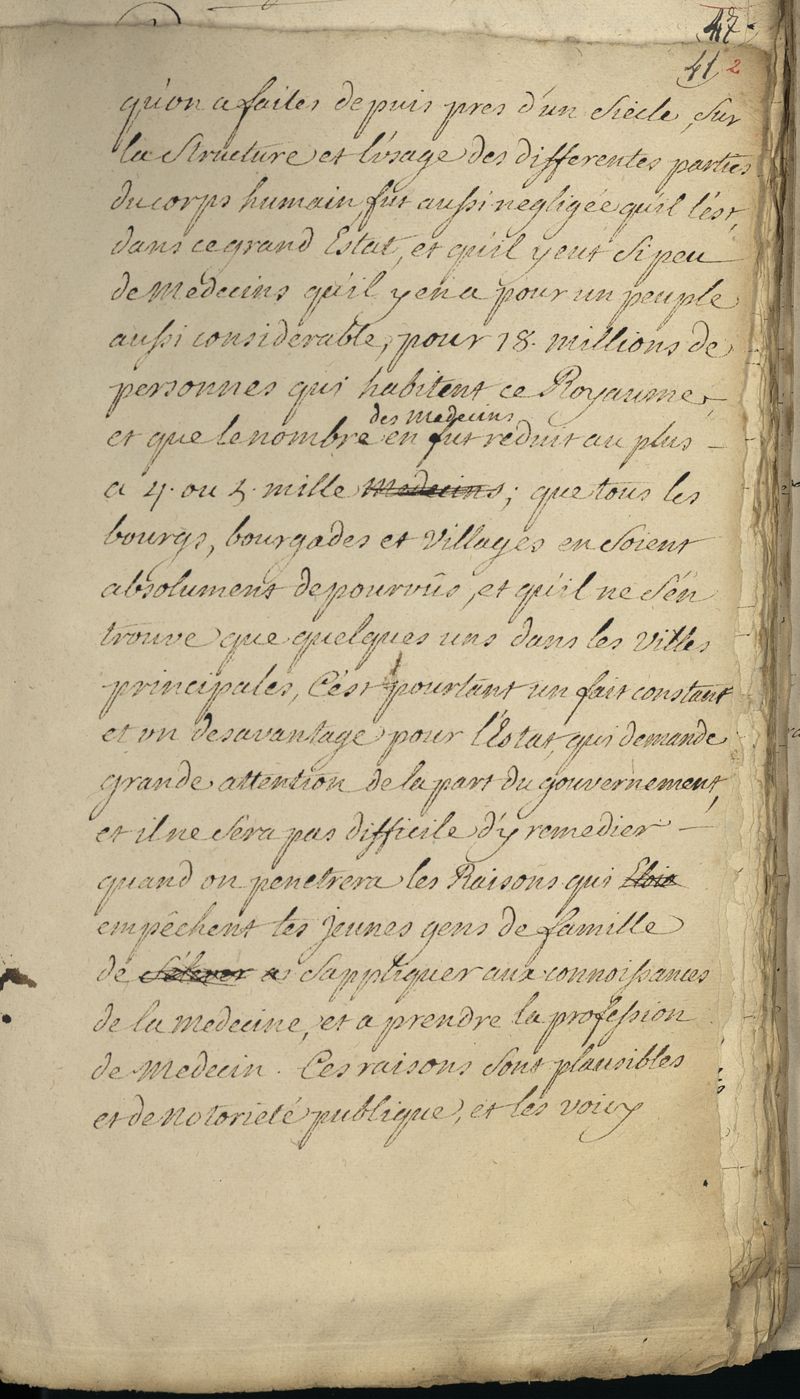 47
41 2
qu'on a faites depuis pres d'un Siécle, Sur
la Structure et l'usage des differentes parties
du corps humain, fut aussi negligée qu'il l'est,
dans ce grand Estat, et qu'il y eut Si peu
de Medecins qu'il y en a pour un peuple
aussi considerable, pour 18. millions de
personnes qui habitent ce Royaume,
des Medecins
et que le nombre en fut reduit au plus
a 4. ou 5. mille Medecins; que tous les
bourgs, bourgades et Villages en Soient
absolument depourvûs, et qu'il ne S'en
trouve que quelques uns dans les Villes
principales, C'est pourtant un fait constant
et un desavantage pour l'Estat, qui demande
grande attention de la part du gouvernement,
et il ne Sera pas difficile d'y remedier
quand on penetrera les Raisons qui
empêchent les jeunes gens de famille
de a S'appliquer aux connoissances
de la medecine, et a prendre la profession
de Medecin. Ces raisons Sont plausibles
et de Notorieté publique, et les voicy